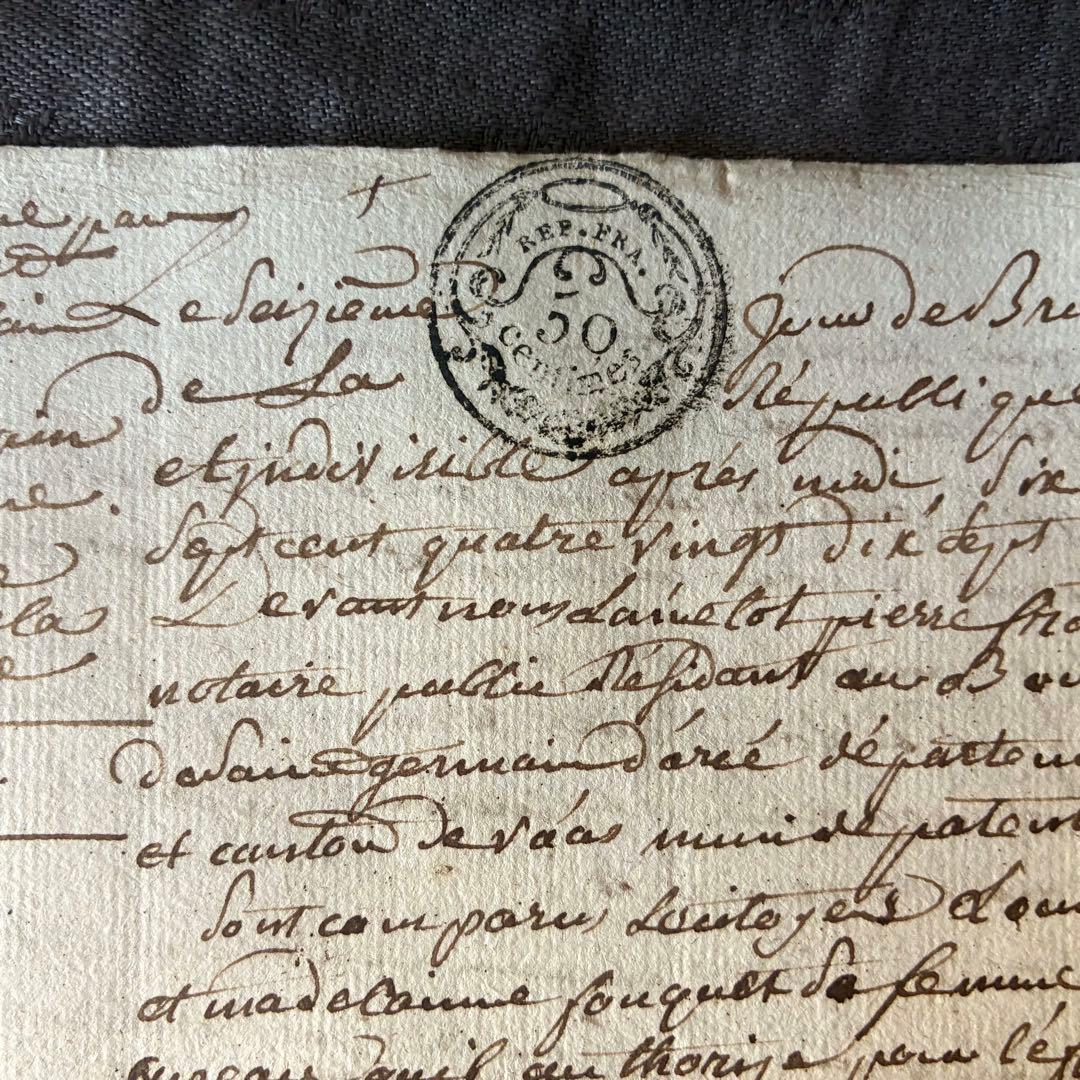 REP. FRA.
50
centimes
Le Seizieme jour de Bru
de La République
et jndivisible après midi, dix
Sept cent quatre vingt dix Sept
Devant nous Lamelot pierre
notaire public Résidant au Bou
de Saint germain d'arcé départem
et canton de vaas muni de patent
Sont comparus Le citoyen Lou
et madelainne fouquet Sa femme
authorise pour l'é